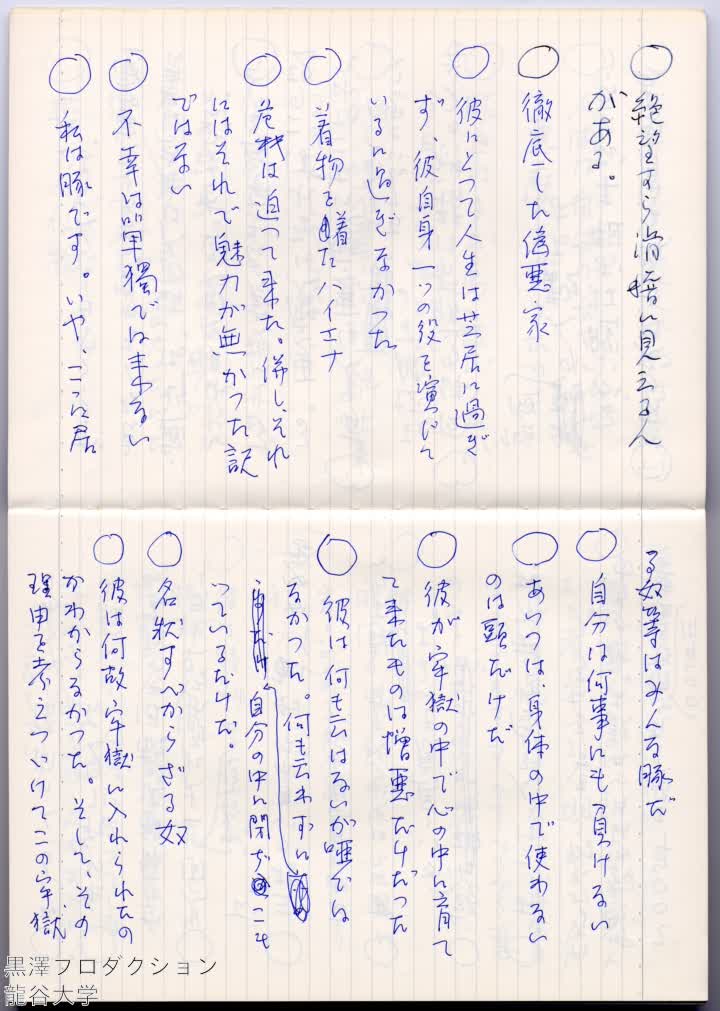 ○ 絶望すら滑稽に見えるん
がある。
○ 徹底した偽悪家
○ 彼にとつて人生は芝居に過ぎ
ず、彼自身一つの役を演じて
いるに過ぎなかつた
○ 着物を着たハイエナ
○ 危機は迫つて来た。併し、それ
にはそれで魅力が無かつた訳
ではない
○ 不幸は単獨では来ない
○ 私は豚です。いや、こゝに居
る奴等はみんな豚だ
○ 自分は何事にも負けない
○ あいつは、身体の中で使わない
のは頭だけだ
○ 彼が牢獄の中で心の中に育て
て来たものは憎悪だけだつた
○ 彼は何も云はないが唖では
なかつた。何も云わずに
自分の中に閉ぢこも
っているだけだ。
○ 名状すべからざる奴
○ 彼は何故牢獄に入れられたの
かわからなかつた。そして、その
理由を考えつゞけてこの牢獄
黒澤プロダクション
龍谷大学